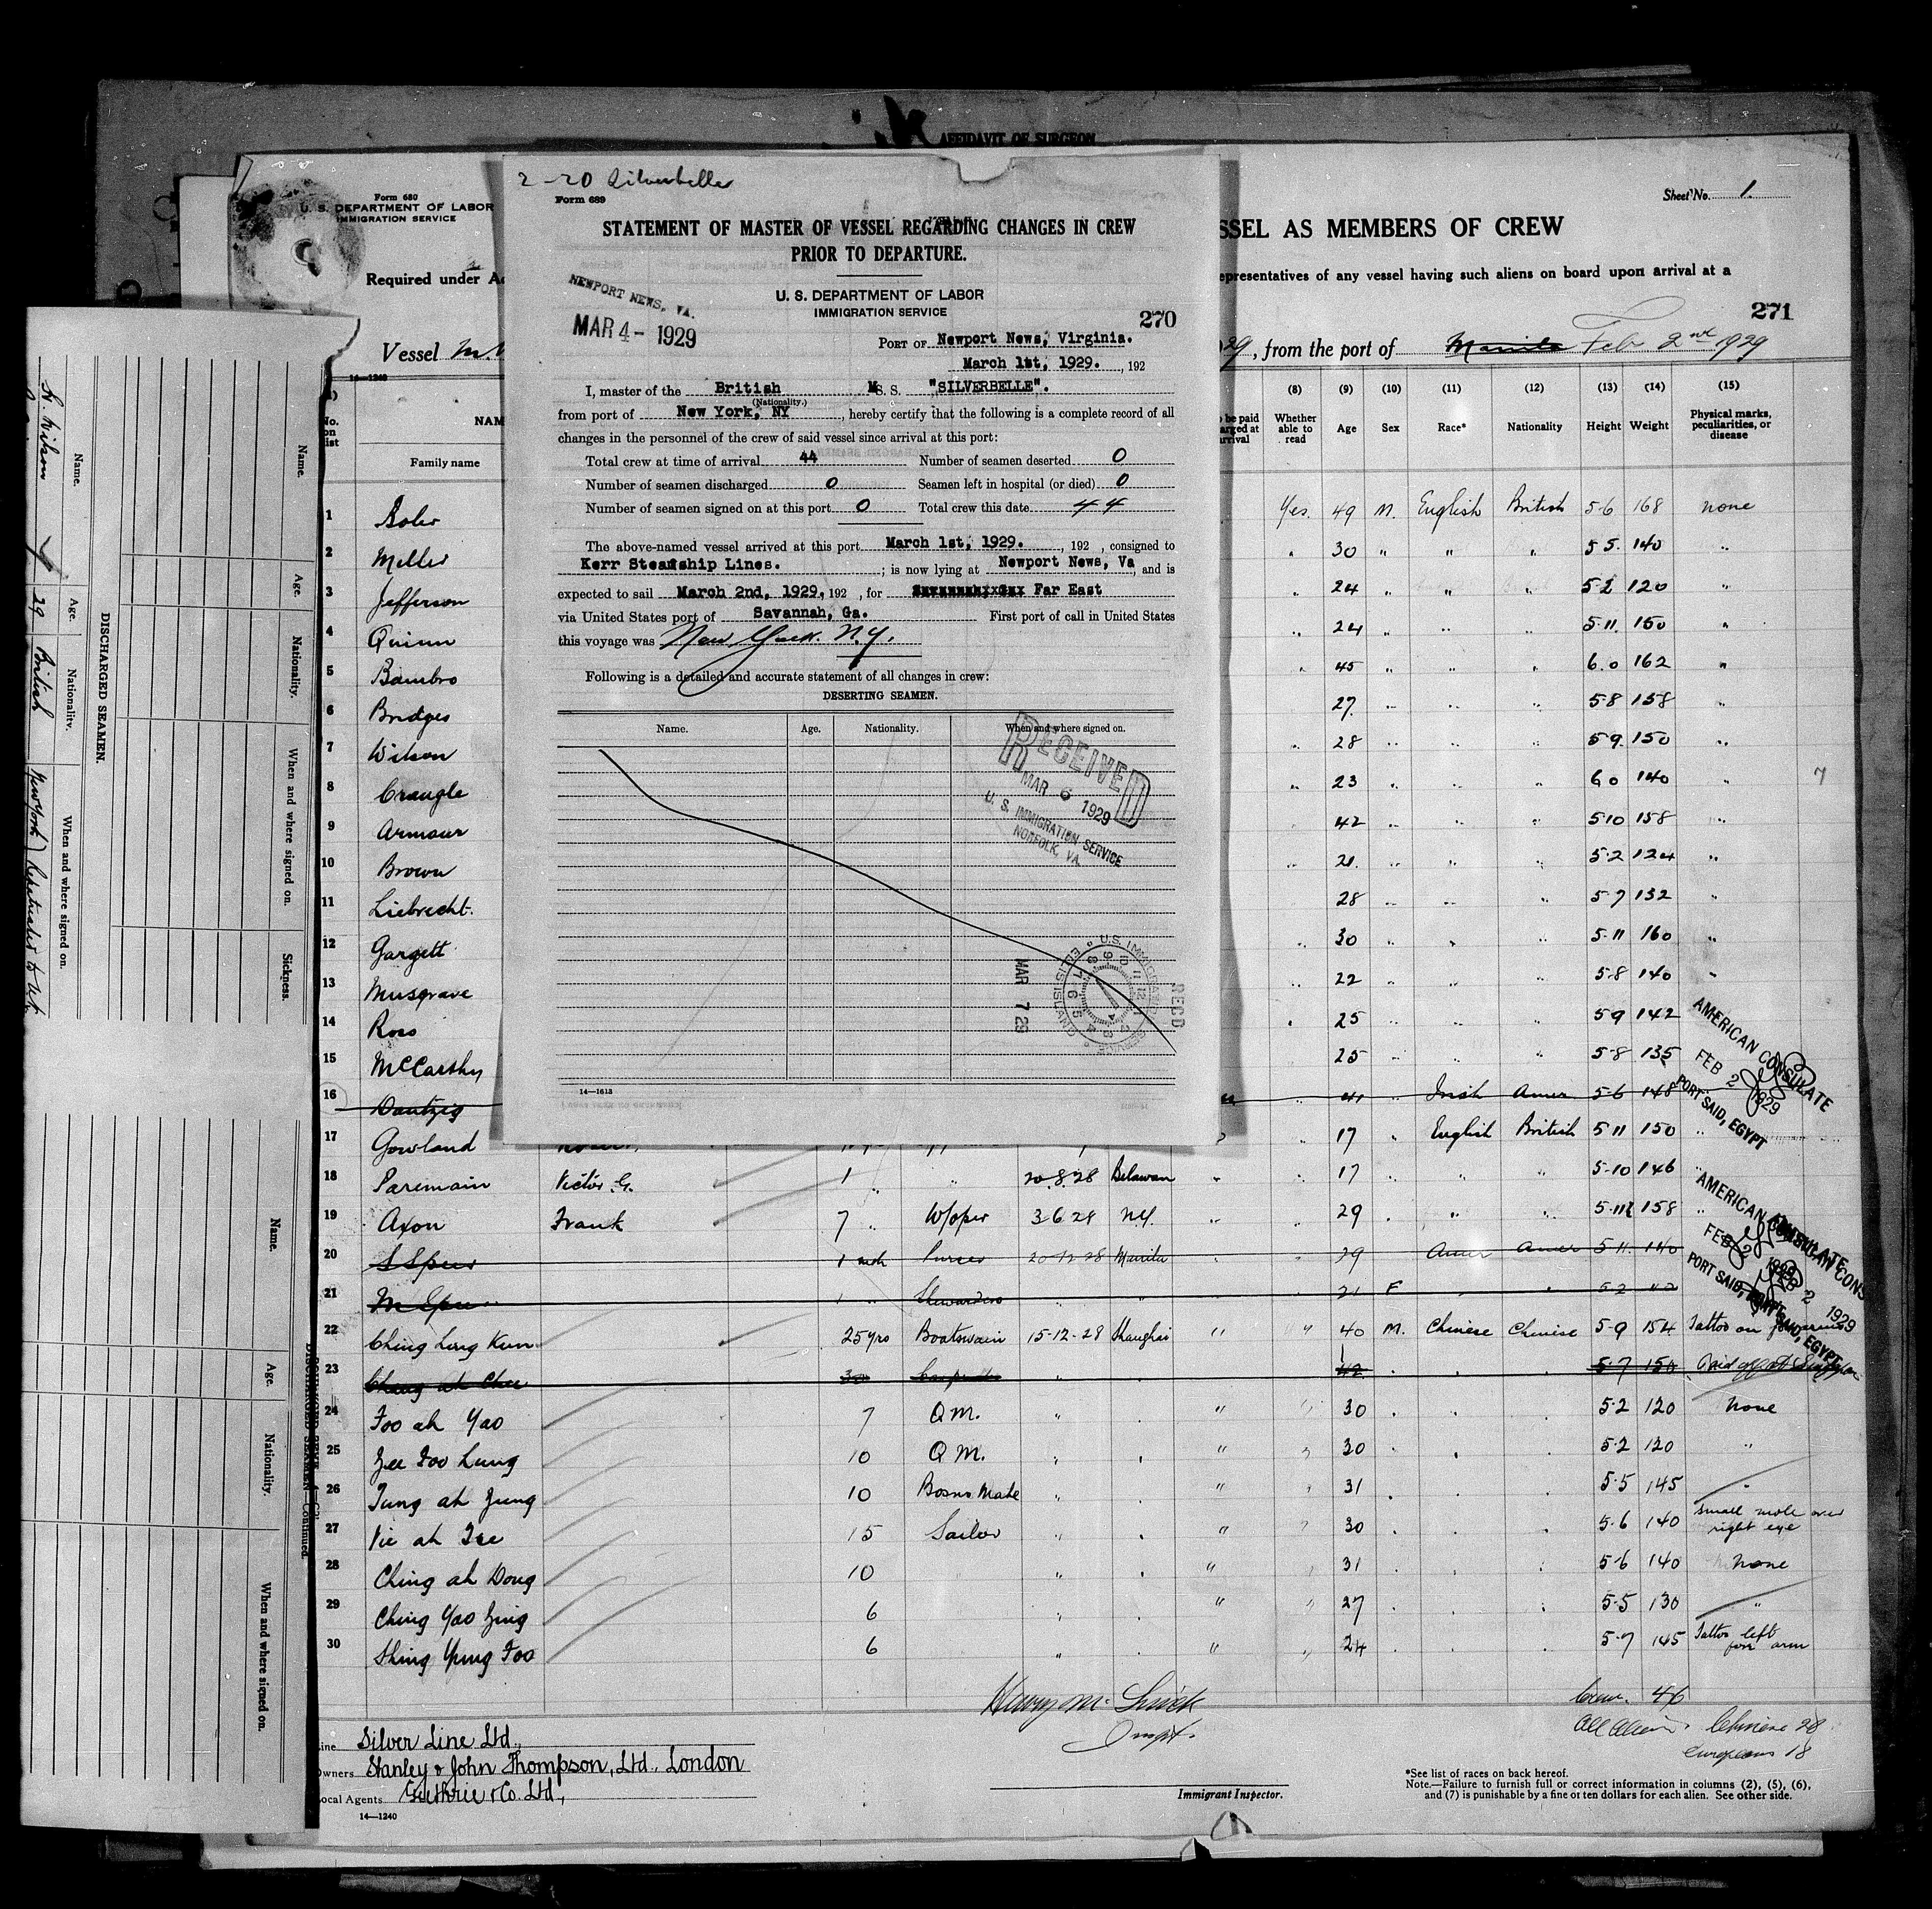 AFFIDAVIT OF SURGEON
2-20 Silverbelle
Form 689
STATEMENT OF MASTER OF VESSEL REGARDING CHANGES IN CREW
PRIOR TO DEPARTURE.
U. S. DEPARTMENT OF LABOR
IMMIGRATION SERVICE
NEWPORT NEWS, VA.
MAR 4 - 1929
270
PORT OF Newport News, Virginia.
March 1st, 1929. , 192
I, master of the British M S. S. "SILVERBELLE".
(Nationality.)
from port of New York, NY , hereby certify that the following is a complete record of all
changes in the personnel of the crew of said vessel since arrival at this port:
Total crew at time of arrival 44 Number of seamen deserted 0
Number of seamen discharged 0 Seamen left in hospital (or died) 0
Number of seamen signed on at this port 0 Total crew this date 44
The above-named vessel arrived at this port March 1st, 1929. , 192 , consigned to
Kerr Steamship Lines. ; is now lying at Newport News, Va and is
expected to sail March 2nd, 1929, 192 , for Far East
via United States port of Savannah, Ga. First port of call in United States
this voyage was New York. N.Y.
Following is a detailed and accurate statement of all changes in crew:
DESERTING SEAMEN.
Name. Age. Nationality. When and where signed on.
RECEIVED
MAR 6 1929
U. S. IMMIGRATION SERVICE
NORFOLK, VA.
U.S. IMMIGRANT SERVICE ELLIS ISLAND
MAR 7 29
RECD
14—1613
Form 680
U. S. DEPARTMENT OF LABOR
IMMIGRATION SERVICE
Required under A
SSEL AS MEMBERS OF CREW
Sheet No. 1.
epresentatives of any vessel having such aliens on board upon arrival at a
271
Vessel M.
29, from the port of Manila Feb 2nd 1929
14—1240
No. on list
NAM
Family name
be paid
arged at
rrival
(8) Whether able to read
(9) Age
(10) Sex
(11) Race*
(12) Nationality
(13) Height
(14) Weight
(15) Physical marks, peculiarities, or disease
1 Yes. 49 M. English British 5·6 168 none
2 Meller " 30 " " " 5 5. 140 "
3 Jefferson " 24 5·2 120 "
4 Quinn " 24 " " " 5·11. 150 "
5 Bambro " 45 " " " 6.0 162 "
6 Bridges 27. " " " 5·8 158 "
7 Wilson " 28 " " " 5·9. 150 "
8 Craugle " 23 " " " 6·0 140 "
9 Armour 42 " " " 5·10 158 "
10 Brown " 21. " " " 5·2 124 "
11 Liebrecht. 28 " " " 5·7 132 "
12 Gargett " 30 " " " 5·11 160 "
13 Musgrave " 22 " " " 5·8 140 "
14 Ross " 25 " " " 5 9 142 "
15 McCarthy 25 " " " 5·8 135
16 Dantzig " 41 " Irish Amer 5·6 148
17 Gowland " 17 " English British 5 11 150 "
18 Paremain Victor G. 1 " " 20.8.28 Belawan " " 17 " " " 5·10 146 "
19 Axon Frank 7 " W/oper 3·6·28 N.Y. " " 29 " " " 5·11½ 158 "
20 S Speer 1 mth Purser 20-12-28 Manila 29 Amer Amer 5 11. 140
21 1 " Stewardess " " 21 F " " 5·2
22 Ching Ling Kun 25 yrs Boatswain 15-12-28 Shanghai " " 40 M. Chinese Chinese 5·9 154 Tattoo on forearms
23 Chang ah Chee 42 5·7 150 Paid off at Singapore
24 Foo ah Yao 7 Q M. " " " 30 5·2 120 none
25 Zee Foo Lung 10 Q M. " " " 30 5·2 120 "
26 Tung ah Jung 10 Bosns Mate " " " 31 5·5 145 "
27 Vie ah Tse 15 Sailor " " " 30 5·6 140 small mole over
right eye
28 Ching ah Dong 10 " " " 31 5·6 140 none
29 Ching Yao Zing 6 " " " 27 5·5 130 "
30 Shing Yung Foo 6 " " " 24 5·7 145 Tattoo left
fore arm
AMERICAN CONSULATE
FEB 2 1929
PORT SAID, EGYPT
AMERICAN CONSULATE
FEB 2 1929
PORT SAID, EGYPT
Crew. 46
All Aliens. Chinese 28
Europeans 18
Line Silver Line Ltd.,
Owners Stanley & John Thompson, Ltd., London
Local Agents Guthrie & Co. Ltd.,
14—1240
Immigrant Inspector.
*See list of races on back hereof.
Note.—Failure to furnish full or correct information in columns (2), (5), (6),
and (7) is punishable by a fine of ten dollars for each alien. See other side.
DISCHARGED SEAMEN.
Name. Age. Nationality. When and where signed on.
Wilson 29 British New York
Name. Nationality. When and where signed on. Sickness.
Age.
DISCHARGED SEAMEN—Continued.
Name. Age. Nationality. When and where signed on.